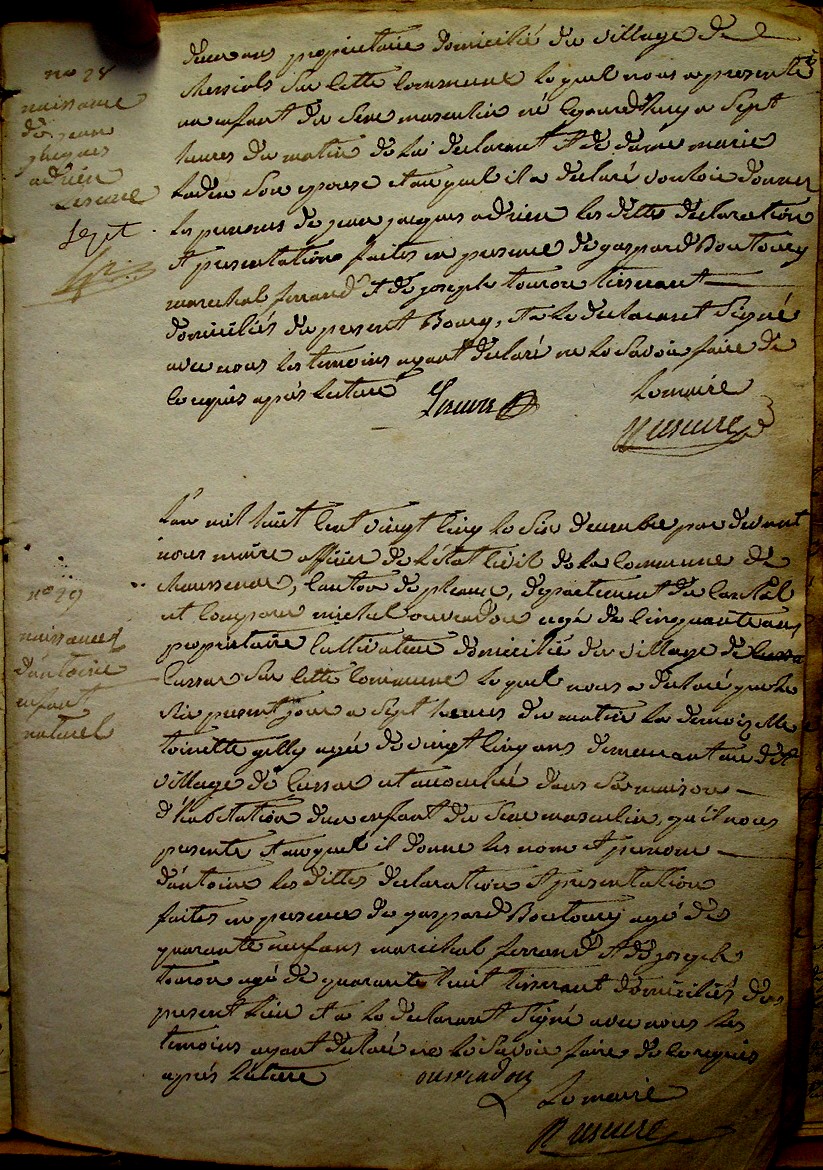 no 28
naissance
de jean
jacques
adrien
Lescure
deux ans propriétaire domicilié du village de
Chersiols sur cette Commune lequel nous a presenté
un enfant du sexe masculin né aujourd'huy a Sept
heures du matin de lui declarant et de dame marie
son epouse et auquel il a declaré vouloir donner
les prenoms de jean jacques adrien les dittes declaration
et presentation faites en presence de gaspard Boutoury
marechal ferrand et de joseph touron tisserant
domiciliés du present Bourg, et a le declarant Signé
avec nous les temoins ayant declaré ne le Savoir faire de
ce requis après lecture
Lescure
Le maire
Rescure
no 29
naissance
d'antoine
enfant
naturel
L'an mil huit Cent vingt Cinq le Six decembre par devant
nous maire officier de l'état Civil de la Commune de
Chaussenac, Canton de pleaux, departement du Cantal
est Comparu michel ouvradou agé de Cinquante ans
propriétaire Cultivateur domicilié du village de
Cussac sur cette Commune lequel nous a declaré que le
Six present jour a Sept heures du matin la demoiselle
toinette gilly agée de vingt Cinq ans demeurant au dit
village de Cussac est accouchée dans Sa maison
d'habitation d'un enfant du Sexe masculin, qu'il nous
presente et auquel il donne les nom et prenom
d'antoine les dittes declaration et presentation
faites en presence de gaspard Boutoury agé de
quarante neuf ans marechal ferrand et de joseph
touron agé de quarante huit tisserant domiciliés du
present lieu et a le declarant Signé avec nous les
temoins ayant declaré ne le Savoir faire de ce requis
après lecture
ouvradou
Le maire
Rescure